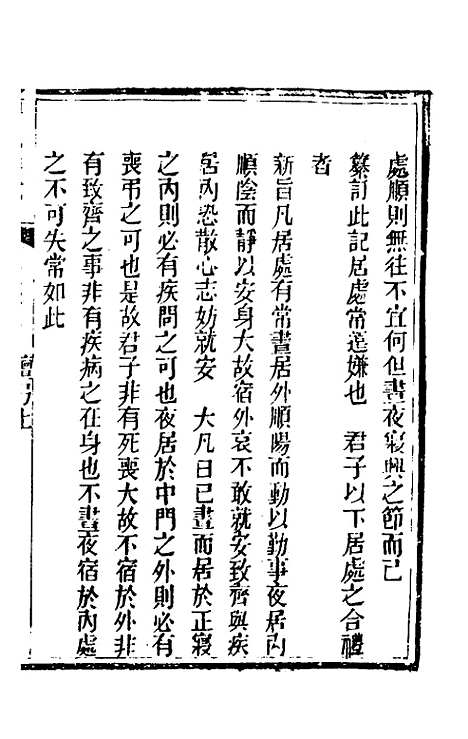 處順則無往不宜何但晝夜寢興之節而已
纂訂此記居處常道嫌也　君子以下居處之合禮
者
新旨凡居處有常晝居外順陽而動以勤事夜居內
順陰而靜以安身大故宿外哀不敢就安致齊與疾
居內恐散心志妨就安　大凡日已晝而居於正寢
之內則必有疾問之可也夜居於中門之外則必有
喪弔之可也是故君子非有死喪大故不宿於外非
有致齊之事非有疾病之在身也不晝夜宿於內處
之不可失常如此